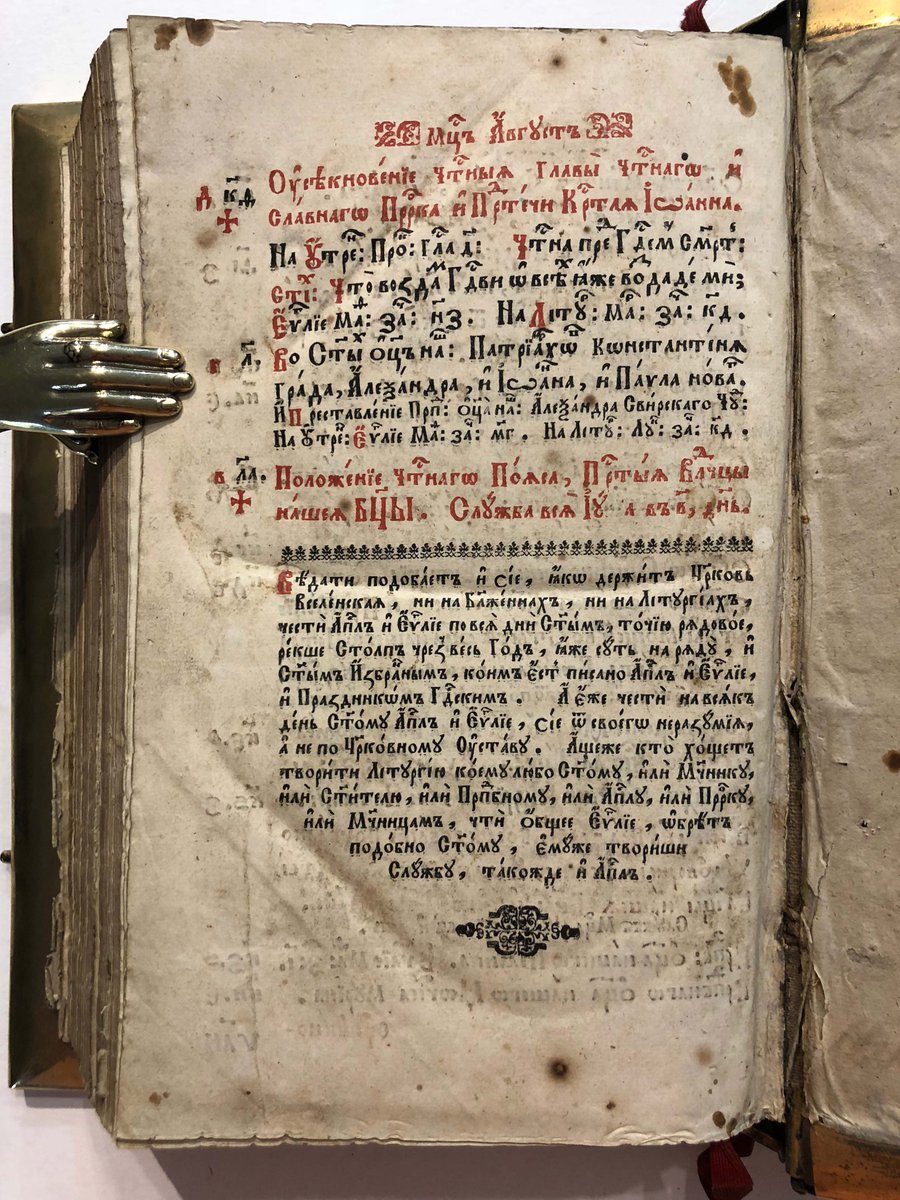 Мц҃ъ А҆́vгустъ
Оу҆сѣкнове́нїе чⷭ҇тны́ѧ главы̀ чⷭ҇тна́гѡ и҆
сла́внагѡ Прⷪ҇ро́ка и҆ Прⷣте́чи Крⷭ҇ти́телѧ І҆ѡа́нна.
На Оу҆́тре: Про: Гла́ д҃: Чⷭ҇тна̀ пре Гдⷭ҇ем Сме́рт:
сті́х: Что̀ возда́м Гдⷭ҇ви ѡ҆ всѣ́х ꙗ҆̀же воздаде́ мѝ:
Є҆ѵⷢ҇лїе Ма: за: н҃з. На Літꙋ: Ма: за: к҃д.
л҃, во Ст҃ы́х оц҃ъ на́ш: Патрїа́рхѡв Кѡнстанті́нѧ
гра́да, А҆леѯа́ндра, и҆ І҆ѡа́нна, и҆ Па́ѵла но́ва.
И҆ преставле́нїе Прпⷣ: ѻ҆ц҃а̀ на́: А҆леѯа́ндра Сви́рскаго Чꙋ:
На Оу҆́тре: Є҆ѵⷢ҇лїе Ма: за: м҃г. На Літꙋ: Лꙋ: за: к҃д.
л҃а. Положе́нїе чⷭ҇тна́гѡ По́ѧса, Прⷭ҇ты́ѧ Влⷣчцы
на́шеѧ Бц҃ы. Слꙋ́жба всѧ̀ І҆ꙋ́ а въ в҃, де́нь.
Вѣ́дати подоба́етъ и҆ сїѐ, ꙗ҆́кѡ держи́тъ Цр҃ковь
Вселе́нскаѧ, ни на Блаже́ннахъ, ни на Літꙋргі́ахъ,
честѝ А҆пⷭ҇лъ и҆ Є҆ѵⷢ҇лїе по всѧ̀ дни Ст҃ы́мъ, то́чїю рѧдово́е,
ре́кше Сто́лпъ чрез̾ ве́сь Го́дъ, ꙗ҆́же сꙋ́ть на рѧдꙋ̀, и҆
Ст҃ы́мъ И҆збра̑ннымъ, кои́мъ є҆́ст̾ пи́сано А҆пⷭ҇лъ и҆ Є҆ѵⷢ҇лїе,
и҆ Пра́здникѡмъ Гдⷭ҇скимъ. А҆ є҆́же честѝ на всѧ́къ
де́нь Ст҃о́мꙋ А҆пⷭ҇лъ и҆ Є҆ѵⷢ҇лїе, сїѐ ѿ своегѡ̀ неразꙋ́мїѧ,
а҆ не по Цр҃ко́вномꙋ Оу҆ста́вꙋ. А҆́щеже кто хо́щетъ
твори́ти Літꙋргі́ю ко́емꙋ либо Ст҃о́мꙋ, и҆лѝ Мч҃никꙋ,
и҆лѝ Ст҃и́телю, и҆лѝ Прпⷣбномꙋ, и҆лѝ А҆пⷭ҇лꙋ, и҆лѝ Прⷪ҇ркꙋ,
и҆лѝ Мч҃ницамъ, чтѝ Ѻ҆́бщее Є҆ѵⷢ҇лїе, ѡ҆брѣ́тъ
подо́бно Ст҃о́мꙋ, є҆мꙋ́же твори́ши
Слꙋ́жбꙋ, та́кожде и҆ А҆пⷭ҇лъ.